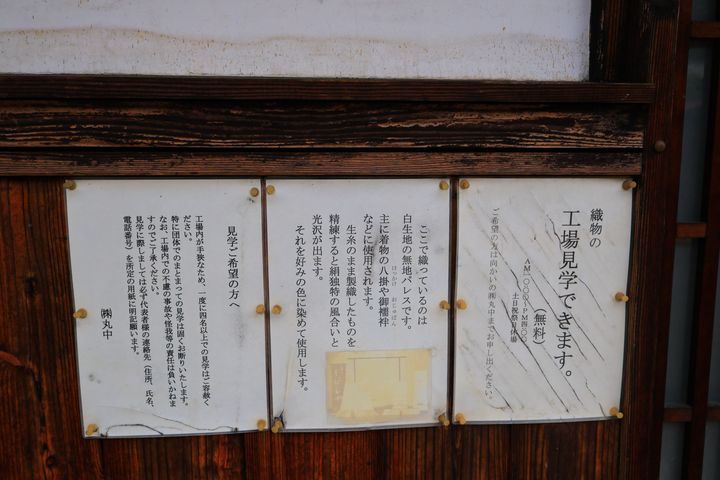 織物の
工場見学できます。
(無料)
AM一〇:〇〇~PM四:〇〇
土日祝祭日休場
ご希望の方は向かいの㈱丸中までお申し出ください。
ここで織っているのは
白生地の無地パレスです。
主に着物の八掛や御襦袢
はっかけ おじゅばん
などに使用されます。
生糸のまま製織したものを
精練すると絹独特の風合いと
光沢が出ます。
それを好みの色に染めて使用します。
見学ご希望の方へ
工場内が手狭なため、一度に四名以上での見学はご容赦く
ださい。
特に団体でのまとまっての見学は固くお断りいたします。
なお、工場内での不慮の事故や怪我等の責任は負いかねま
すのでご了承ください。
見学に際しましては必ず代表者様の連絡先(住所、氏名、
電話番号)を所定の用紙に明記願います。
㈱丸中